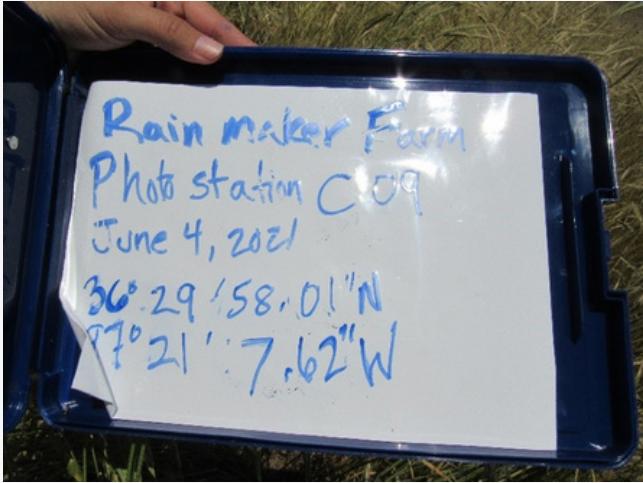 Rain maker Farm
Photo station C 09
June 4, 2021
36° 29 ' 58.01" N
97° 21 ' 7.62" W